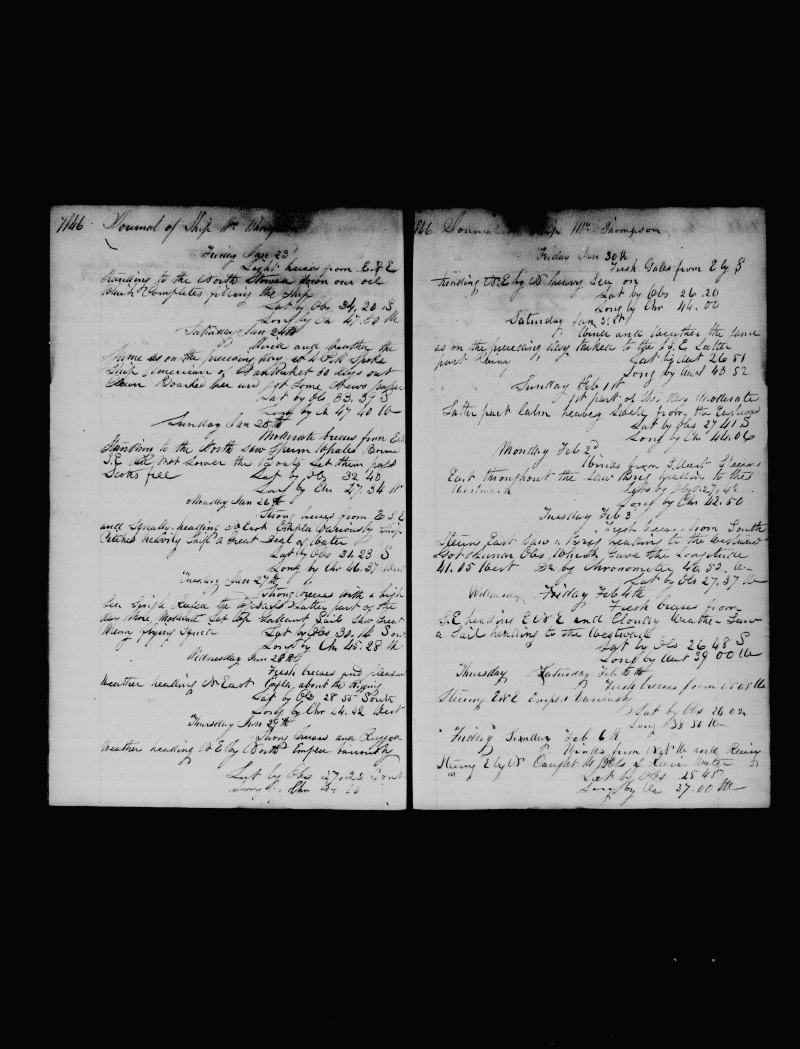 1846 Journal of Ship Wm Thompson
Friday Jan 23d
Light breses from E & E
Standing to the North Stowed down our oil
Completes filling the Ship
Lat by Obs 34,20 S
Long by Ch 47.50 W
Saturday Jan 24th
Wind and weather the
same as on the preceeding day at 4 P.M Spoke
Ship American of Nantucket 60 days out
Clean Boarded her and got Some News paper
Lat by Ob 33.39 S
Long by Ch 47 40 W
Sunday Jan 25th
Moderate breses from East
Standing to the North Saw Sperm Whales Bound
S.E did not Lower the Boats Let them pass
Scots free Lat by Obs 32 40
Long by Chr 27.34 W
Monday Jan 26th
Strong breses from E S E
and Squally heading Empl'd Variously Ship
Pitches heavily Ships a Great Deal of Water
Lat by Obs 31.23 S
Long by Chr 46.37 West
Tuesday Jan 27th
Strong breses with a high
Sea Latter part of the
day More Moderate Set top Gallant Sails Saw Great
Many flying
Lat by Obs 30.14 Sout
Long by Ch 45.28 W
Wednesday Jan 28th
Fresh breses and pleasant
Weather heading N East Empl'd about the Rigging
Lat by Ob 28 55 South
Long by Chr 44.42 West
Thursday Jan 29th
Strong breses and Rugged
Weather heading N E by North Empl'd variously
Lat by Obs 27.22 Sout
Long by Chr
846 Journal Ship Wm Thompson
Friday Jan 30th
Fresh Gales from E by S
heading N.E by N heavy Sea on
Lat by Obs 26.20
Long by Chr 44.00
Saturday Jan 31th
Wind and Weather the same
as on the preceeding day tacked to the S.E Latter
part Rainy Lat by Acct 26 51
Long by Acct 43 52
Sunday Feb 1st
1st part of this day Moderate
Latter part Calm heavey Swell from the Eastward
Lat by Obs 27 41 S
Long by Chr 44.06
Monday Feb 2d
Winds from
East throughout the Saw Brig heading to the
Westward Lat by Obs 27.42
Long by Chr 42.50
Tuesday Feb 3
Fresh breses from South
Steering East Saw a Brig heading to the Westward
Got Lunar Obs Which Gave the Longitude
41.05 West Do by Chronometer 40,52. W
Lat by Obs 27,37
Wednesday Friday Feb 4th
Fresh breses from
S.E heading E N E and Cloudy Weather Saw
a Sail heading to the Westward
Lat by Obs 26 48 S
Long by Acct 39 00 W
Thursday Saturday Feb 5th
Fresh breses from
Steering E N E Empl'd Variously
Lat by Obs 26 02
Long 38 30 W
Friday Sunday Feb 6th
Winds from and Rainy
Steering E by N Caught Bbls of Rain Water
Lat by Obs 25 45
Long by Ch 37.00 W